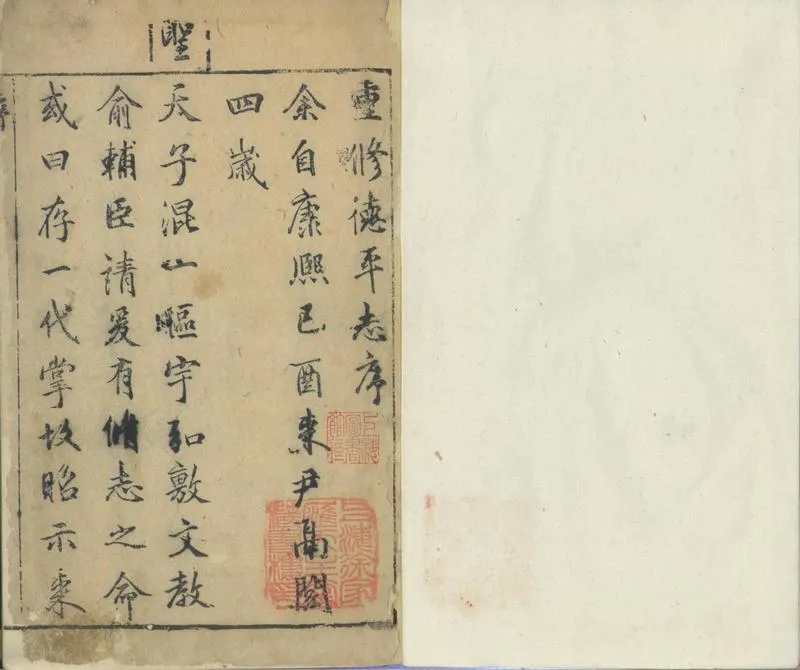 重修德平志序
余自康熙己酉来尹鬲閱
四歲
聖天子混一宇弘敷文教
俞輔臣請爰有脩志之命
或曰存一代掌故昭示来
上海圖書館藏